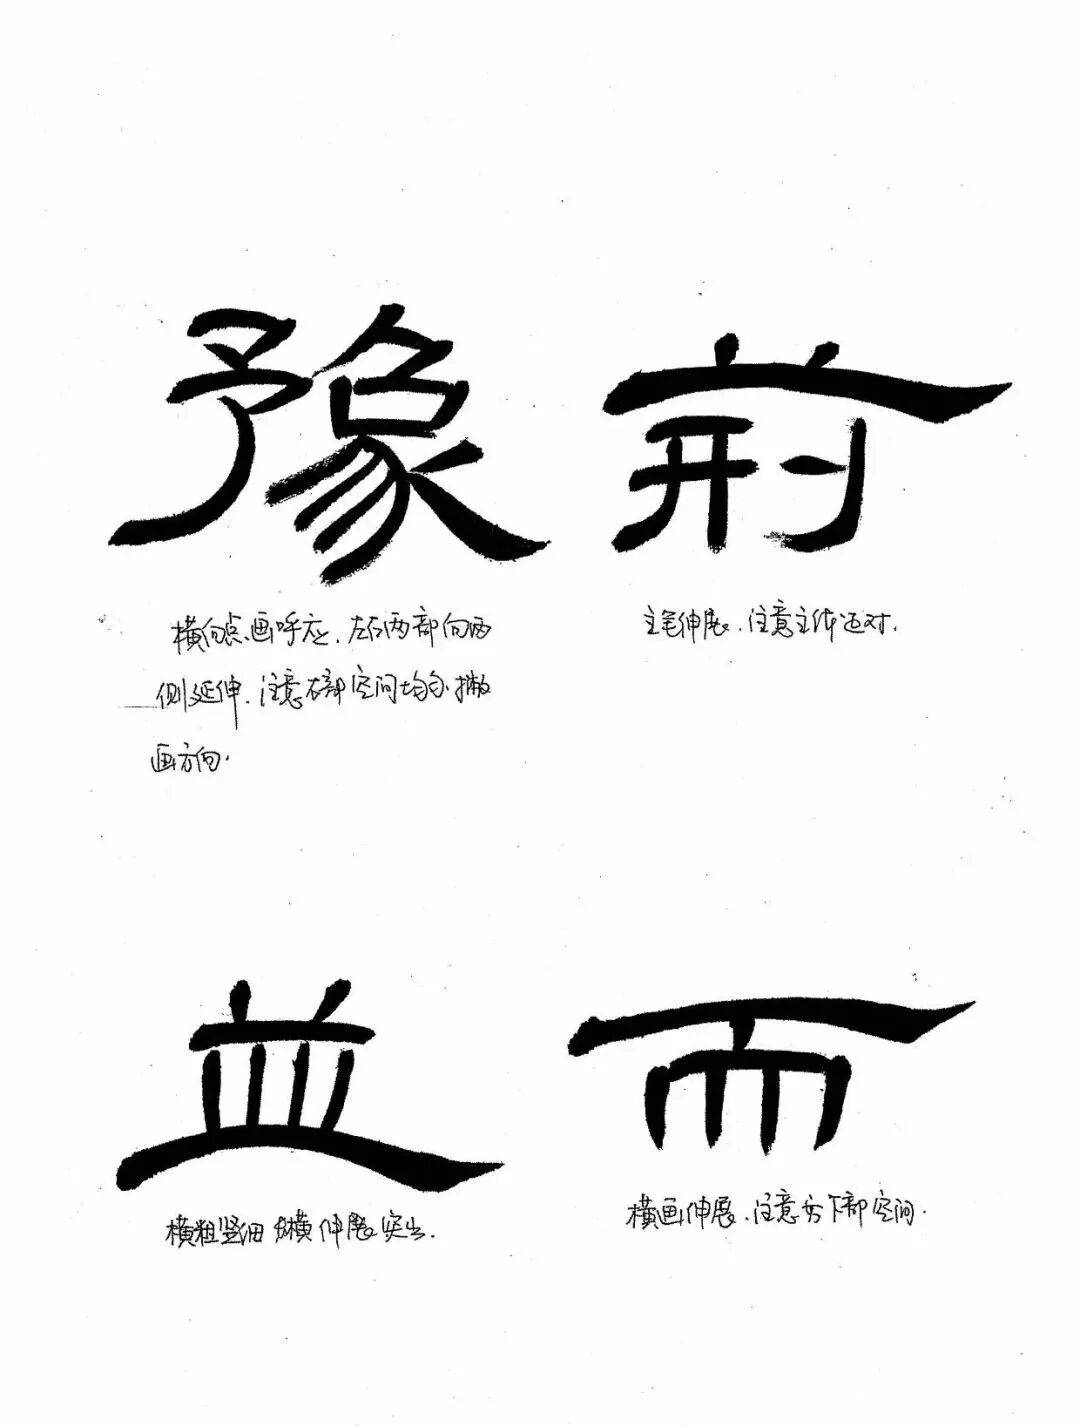 豫 荊
横向点画呼应.左右两部向两
侧延伸.注意右部空间均匀.撇
画方向.
主笔伸展.注意主体
並 而
横粗竖细 横伸展突出.
横画伸展.注意 下部空间.